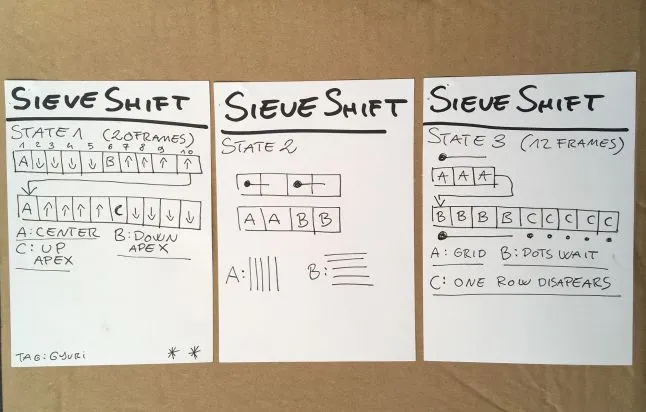 SIEVE SHIFT
STATE 1 (20 FRAMES)
1 2 3 4 5 6 7 8 9 10
A ↓ ↓ ↓ ↓ B ↑ ↑ ↑ ↑
A ↑ ↑ ↑ ↑ C ↓ ↓ ↓ ↓
A: CENTER B: DOWN APEX
C: UP APEX
TAG: GYURI * *
SIEVE SHIFT
STATE 2
A A B B
A: B:
SIEVE SHIFT
STATE 3 (12 FRAMES)
A A A
B B B B C C C C C
A: GRID B: DOTS WAIT
C: ONE ROW DISAPEARS